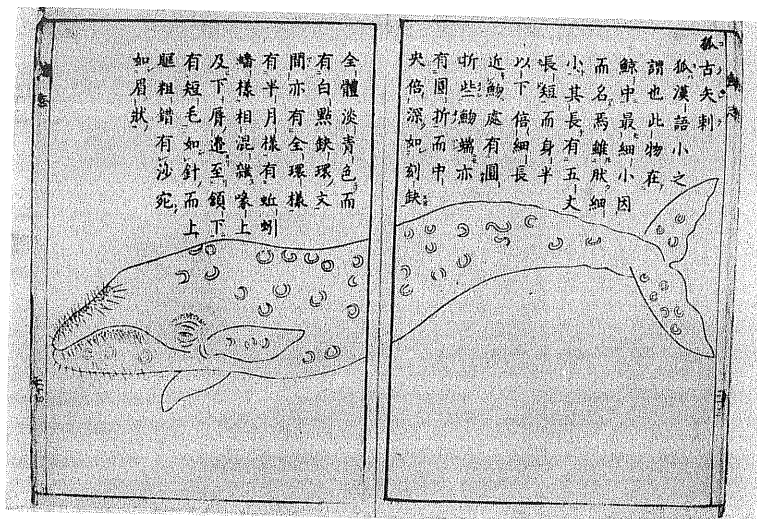 狐古矢刺
狐漢語小之
謂也此物在
鯨中最細小因
而名焉雖肰細
小其長有五丈
長短而身半
以下倍細長
近魶處有圓
折些魶端亦
有圓折而中
央倍深如刻缺
全體淡青色而
有白點缺環文
間亦有全環樣
有半月樣有蚯蚓
蟠樣相混雜喙上
及下唇邊至頷下
有短毛如針而上
軀粗錯有沙宛
如眉狀